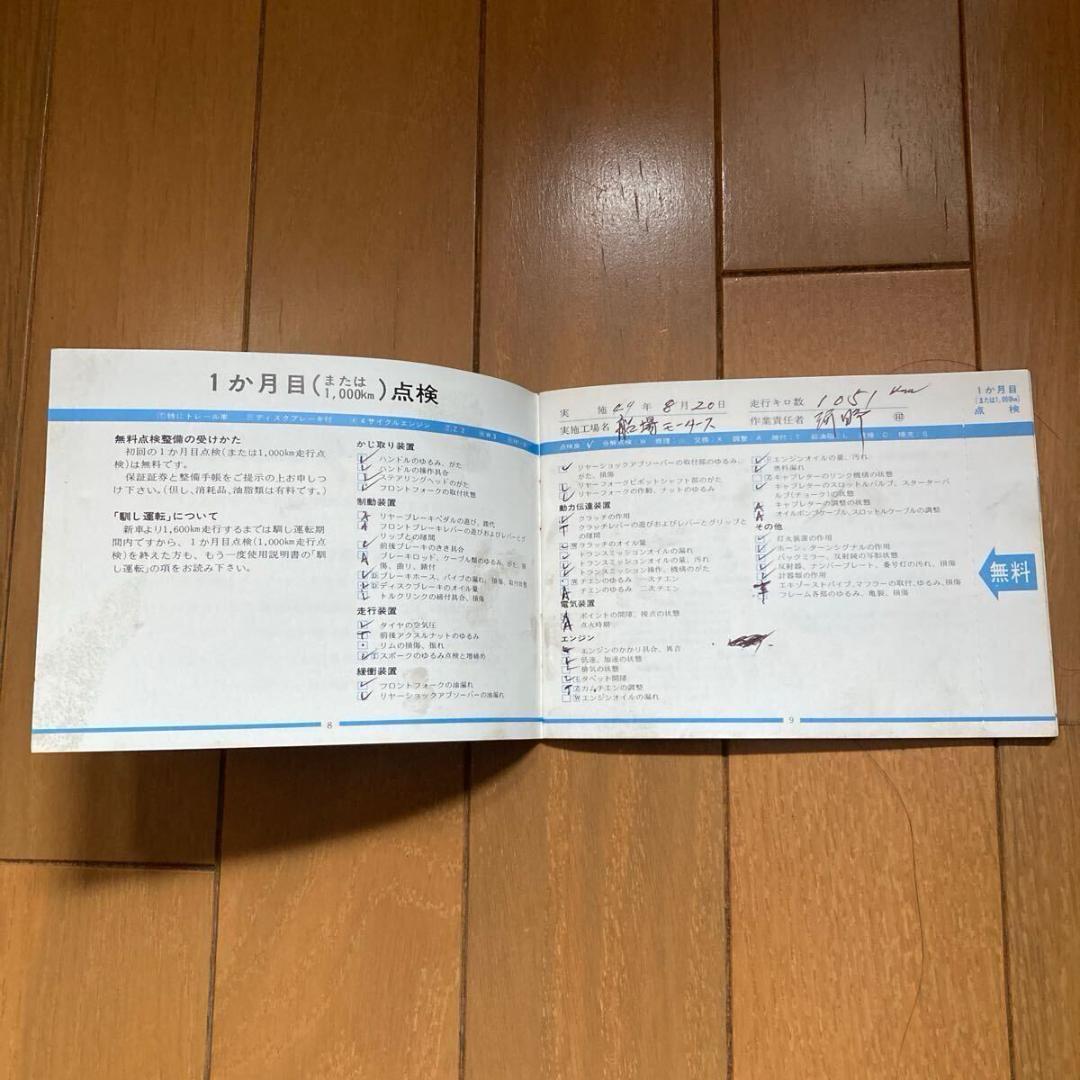 1か月目(または1,000km)点検
無料点検整備の受けかた
初回の1か月目点検(または1,000km走行点
検)は無料です。
保証証券と整備手帳をご提示の上お申しつ
け下さい。(但し、消耗品、油脂類は有料です。)
「馴し運転」について
新車より1,600km走行するまでは馴し運転期
間内ですから、1か月目点検(1,000km走行点
検)を終えた方も、もう一度使用説明書の「馴
し運転」の項をお読み下さい。
かじ取り装置
ハンドルのゆるみ、がた
ハンドルの操作具合
ステアリングヘッドのがた
フロントフォークの取付状態
制動装置
リヤーブレーキペダルの遊び、踏代
フロントブレーキレバーの遊びおよびレバーとグ
リップとの隙間
前後ブレーキのきき具合
ブレーキロッド、ケーブル類のゆるみ、がた、損
傷、曲り、錆付
ブレーキホース、パイプの漏れ、損傷、取付状態
ディスクブレーキのオイル量
トルクリンクの締付具合、損傷
走行装置
タイヤの空気圧
前後アクスルナットのゆるみ
リムの損傷、振れ
スポークのゆるみ点検と増締め
緩衝装置
フロントフォークの油漏れ
リヤーショックアブソーバーの油漏れ
8
実施 49年8月20日 走行キロ数 1051 km
実施工場名 船場モータース 作業責任者
リヤーショックアブソーバーの取付部のゆるみ、
がた、損傷
リヤーフォークピボットシャフト部のがた
リヤーフォークの作動、ナットのゆるみ
動力伝達装置
クラッチの作用
クラッチレバーの遊びおよびレバーとグリップと
の隙間
クラッチのオイル量
トランスミッションオイルの漏れ
トランスミッションオイルの量、汚れ
トランスミッション操作、機構のがた
チエンのゆるみ 一次チエン
チエンのゆるみ 二次チエン
電気装置
ポイントの間隙、接点の状態
点火時期
エンジン
エンジンのかかり具合、異音
低速、加速の状態
排気の状態
タペット間隙
カムチエンの調整
エンジンオイルの漏れ
エンジンオイルの量、汚れ
燃料漏れ
キャブレターのリンク機構の状態
キャブレターのスロットルバルブ、スターターバ
ルブ(チョーク)の状態
キャブレターの調整の状態
オイルポンプケーブル、スロットルケーブルの調整
その他
灯火装置の作用
ホーン、ターンシグナルの作用
バックミラー、反射鏡の写影状態
反射器、ナンバープレート、番号灯の汚れ、損傷
計器類の作用
エキゾーストパイプ、マフラーの取付、ゆるみ、損傷
フレーム各部のゆるみ、亀裂、損傷
9
1か月目
(または1,000km)
点検
無料